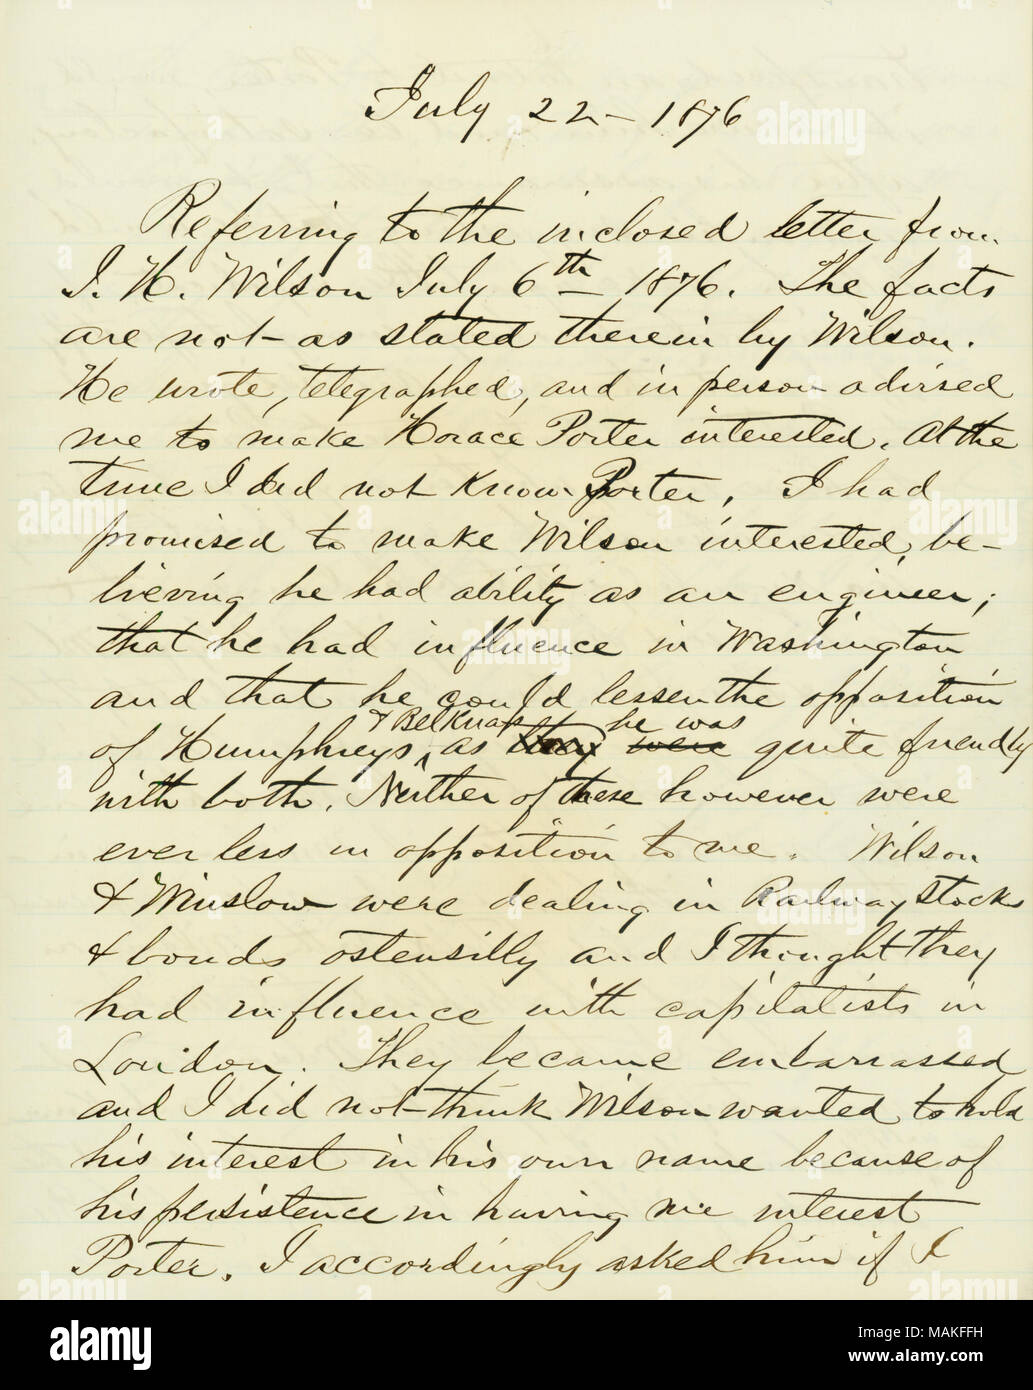 July 22 - 1876
Referring to the inclosed letter from
J. H. Wilson July 6th 1876. The facts
are not as stated therein by Wilson.
He wrote, telegraphed, and in person advised
me to make Horace Porter interested. At the
time I did not know Porter. I had
promised to make Wilson interested, be-
lieving he had ability as an engineer;
that he had influence in Washington
and that he could lessen the opposition
& Belknap he was
of Humphreys, as they were quite friendly
with both. Neither of these however were
ever less in opposition to me. Wilson
& Winslow were dealing in Railway stocks
& bonds ostensilly and I thought they
had influence with capitalists in
London. They became embarrassed
and I did not think Wilson wanted to hold
his interest in his own name because of
his persistence in having me interest
Porter. I accordingly asked him if I
alamy
alamy
Image ID: MAKFFH
www.alamy.com